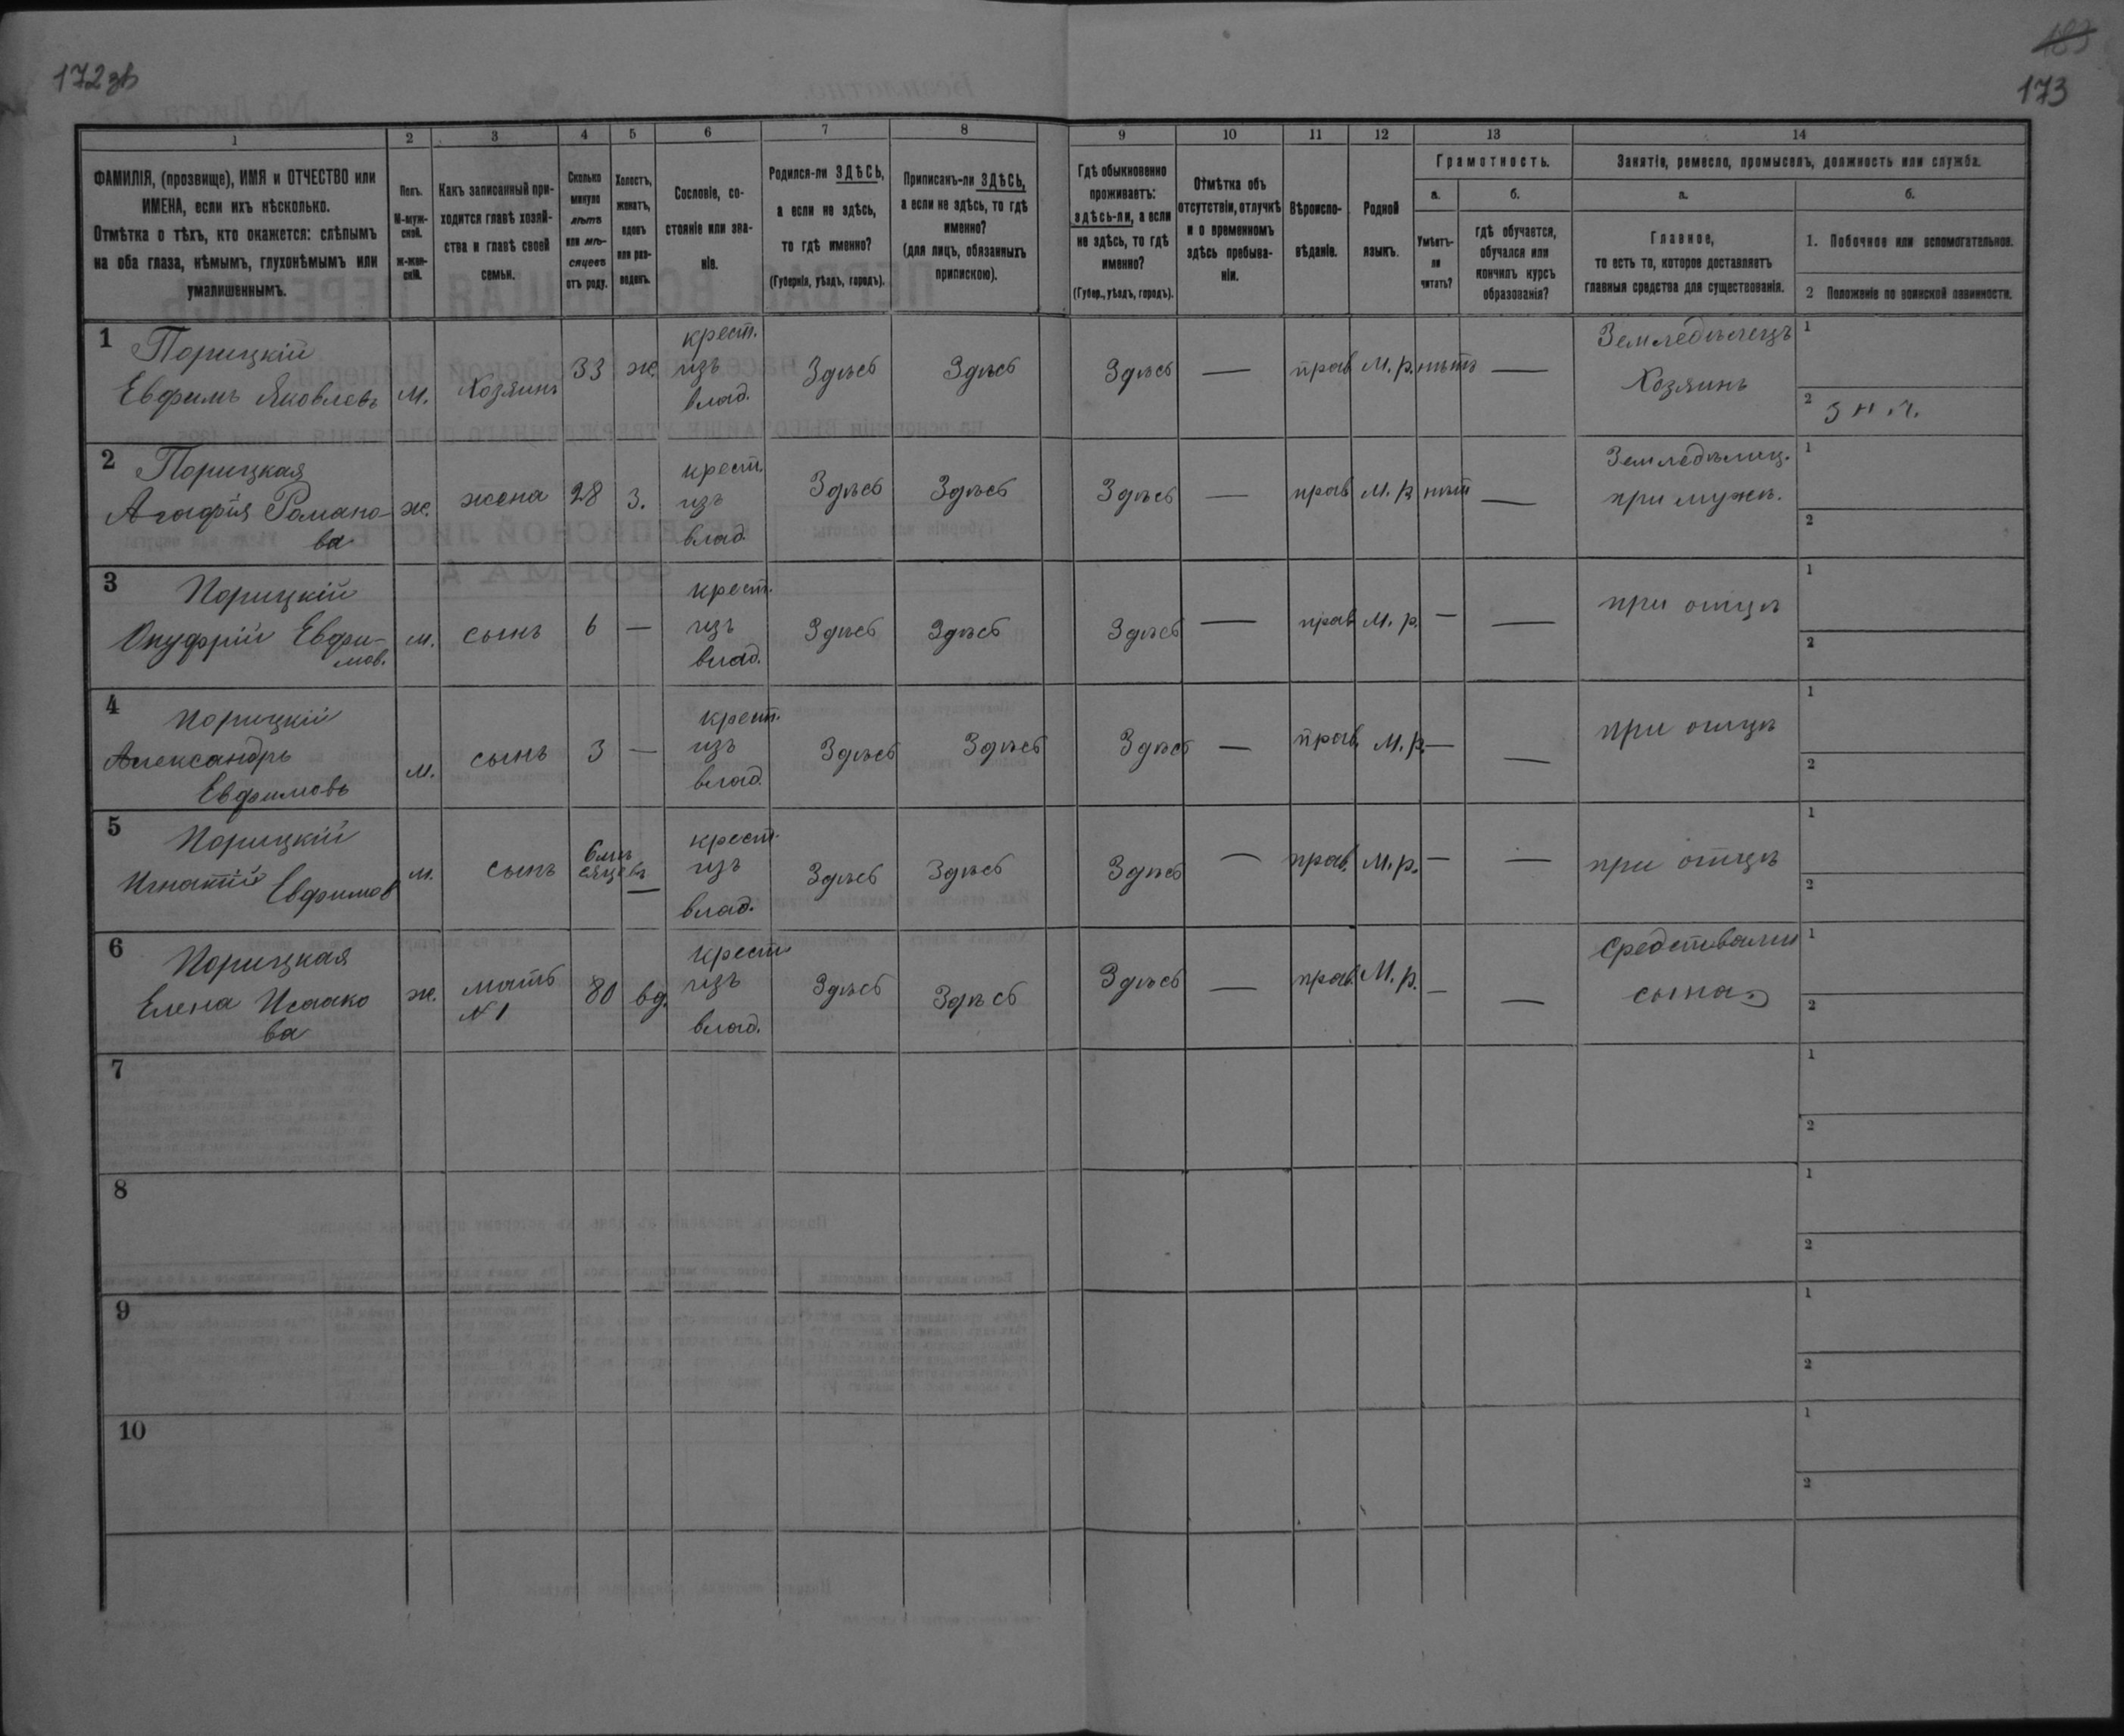 172зв
183
173
1
2
3
4
5
6
7
8
9
10
11
12
13
14
ФАМИЛІЯ, (прозвище), ИМЯ и ОТЧЕСТВО или
ИМЕНА, если ихъ нѣсколько.
Отмѣтка о тѣхъ, кто окажется: слѣпымъ
на оба глаза, нѣмымъ, глухонѣмымъ или
умалишеннымъ.
Полъ.
М-муж-
ской.
ж-жен-
скій.
Какъ записанный при-
ходится главѣ хозяй-
ства и главѣ своей
семьи.
Сколько
минуло
лѣтъ
или мѣ-
сяцевъ
отъ роду.
Холостъ,
женатъ,
вдовъ
или раз-
веденъ.
Сословіе, со-
стояніе или зва-
ніе.
Родился-ли ЗДѢСЬ,
а если не здѣсь,
то гдѣ именно?
(Губернія, уѣздъ, городъ).
Приписанъ-ли ЗДѢСЬ,
а если не здѣсь, то гдѣ
именно?
(для лицъ, обязанныхъ
припискою).
Гдѣ обыкновенно
проживаетъ:
здѣсь-ли, а если
не здѣсь, то гдѣ
именно?
(Губер., уѣздъ, городъ).
Отмѣтка объ
отсутствіи, отлучкѣ
и о временномъ
здѣсь пребыва-
ніи.
Вѣроиспо-
вѣданіе.
Родной
языкъ.
Грамотность.
а.
б.
Умѣетъ-
ли
читать?
гдѣ обучается,
обучался или
кончилъ курсъ
образованія?
Занятіе, ремесло, промыселъ, должность или служба.
а.
б.
Главное,
то есть то, которое доставляетъ
главныя средства для существованія.
1. Побочное или вспомогательное.
2 Положеніе по воинской повинности.
1
Порицкій
Евфимъ Яковлевъ
м.
Хозяинъ
33
ж.
крест.
изъ
влад.
Здѣсь
Здѣсь
Здѣсь
—
прав
М. р.
нѣтъ
—
Земледѣлецъ
Хозяинъ
1
2
2
Порицкая
Агафія Романо-
ва
ж.
жена
28
з.
крест.
изъ
влад.
Здѣсь
Здѣсь
Здѣсь
—
прав
М. р.
нѣт
—
Земледѣлиц.
при мужѣ.
1
2
3
Порицкій
Онуфрій Евфи-
мов.
м.
сынъ
6
—
крест.
изъ
влад.
Здѣсь
Здѣсь
Здѣсь
—
прав
М. р.
—
—
при отцѣ
1
2
4
Порицкій
Александръ
Евфимовъ
м.
сынъ
3
—
крест.
изъ
влад.
Здѣсь
Здѣсь
Здѣсь
—
прав.
М. р.
—
—
при отцѣ
1
2
5
Порицкій
Игнатій Евфимов
м.
сынъ
6 мѣ
сяцевъ
—
крест.
изъ
влад.
Здѣсь
Здѣсь
Здѣсь
—
прав.
М. р.
—
—
при отцѣ
1
2
6
Порицкая
Елена Исаако
ва
ж.
мать
N 1
80
вд.
крест.
изъ
влад.
Здѣсь
Здѣсь
Здѣсь
—
прав.
М. р.
—
—
Средствами
сына
1
2
7
1
2
8
1
2
9
1
2
10
1
2